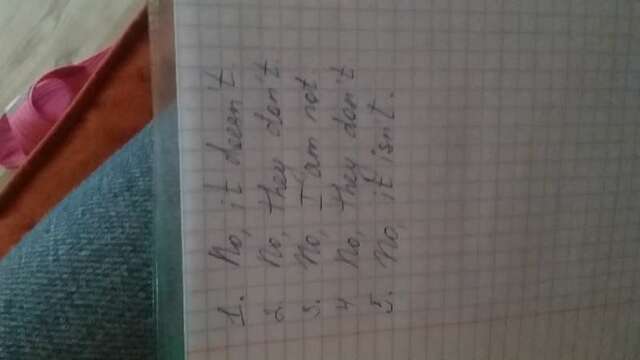 1. No, it doesn't.
2. No, they don't.
3. No, I am not
4 No, they don't
5. No, it isn't.